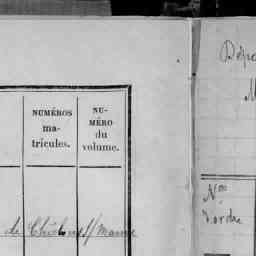 NUMÉROS
ma-
tricules.
NU-
MÉRO
du
volume.
de Châlons s/ Marne
Dépa
M
Nos
d'ordre